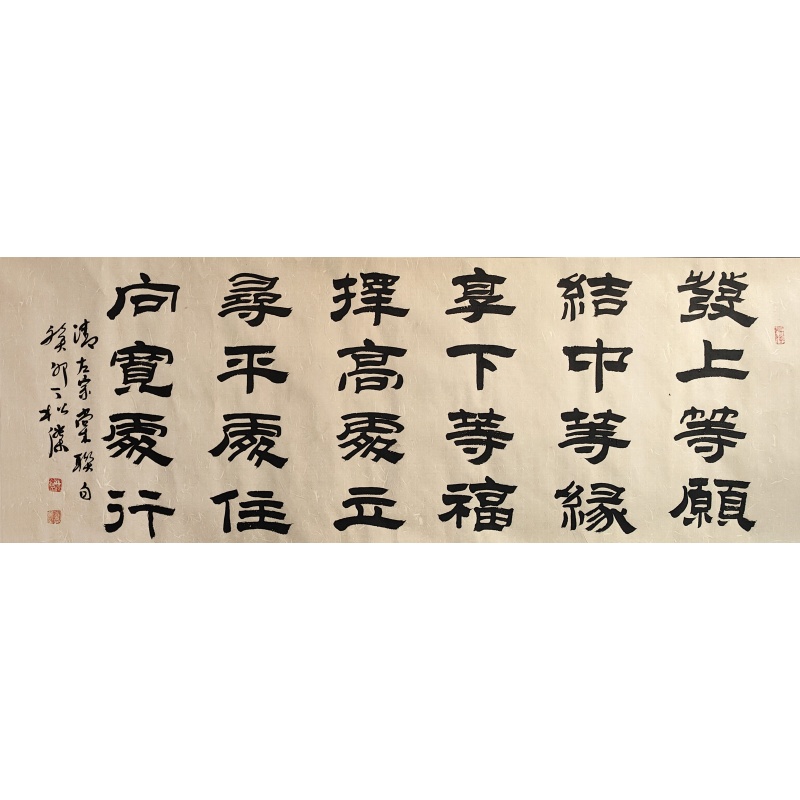 發上等願
結中等緣
享下等福
擇高處立
尋平處住
向寬處行
清左宗棠聯句
癸卯丁松濂